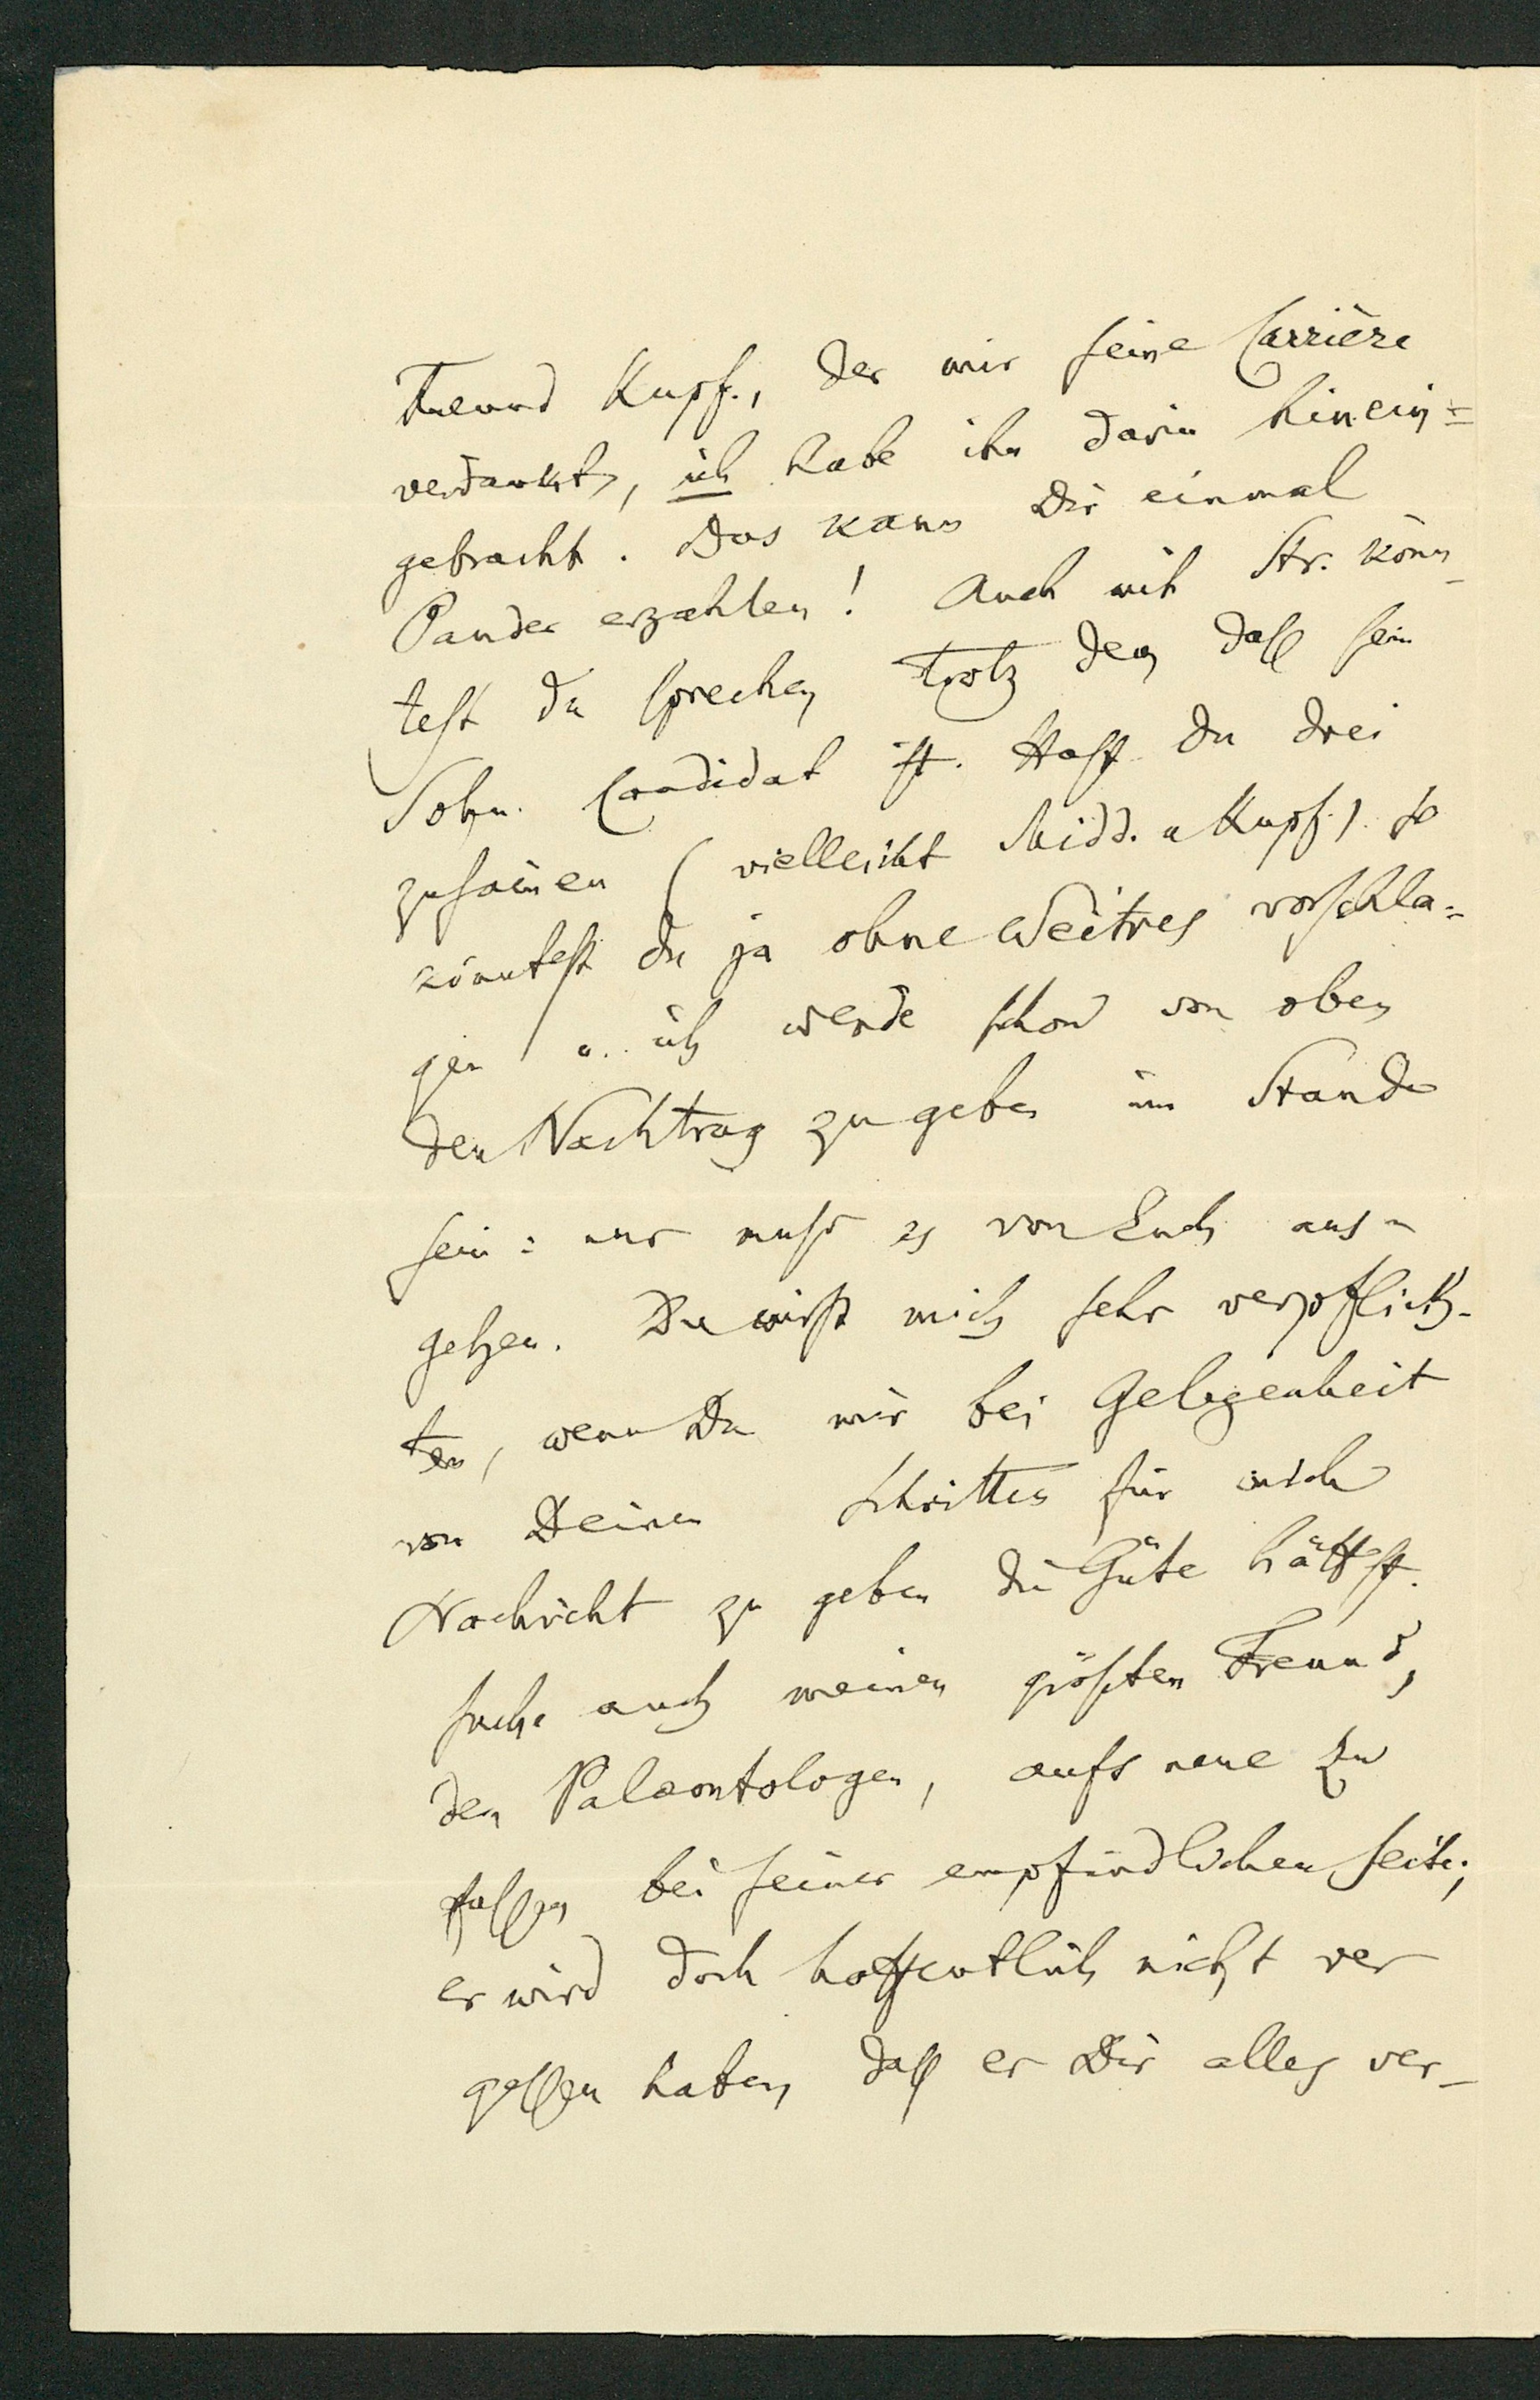 Freund Kupf., der mir seine Carrière
verdankt, ich habe ihn darin hinein=
gebracht. Das kann Dir einmal
Pander erzahlen! Auch mit Str. könn
test du sprechen trotz dem daß sein
Sohn Candidat ist. Hast du drei
zusam̄en (vielleicht Midd. u Kupf.). so
könntest du ja ohne Weitres vorschla=
gen u. ich werde schon von oben
den Nachtrag zu geben im Stande
sein: nur muß es von Euch aus=
gehen. Du wirst mich sehr verpflich-
ten, wenn Du mir bei Gelegenheit
von Deinen Schritten für mich
Nachricht zu geben die Güte hättest.
Suche auch meinen größten Freund,
den Palaontologen, aufs neue zu
fassen bei seiner empfindlichen Seite;
er wird doch hoffentlich nicht ver
gessen haben, daß er Dir alles ver-